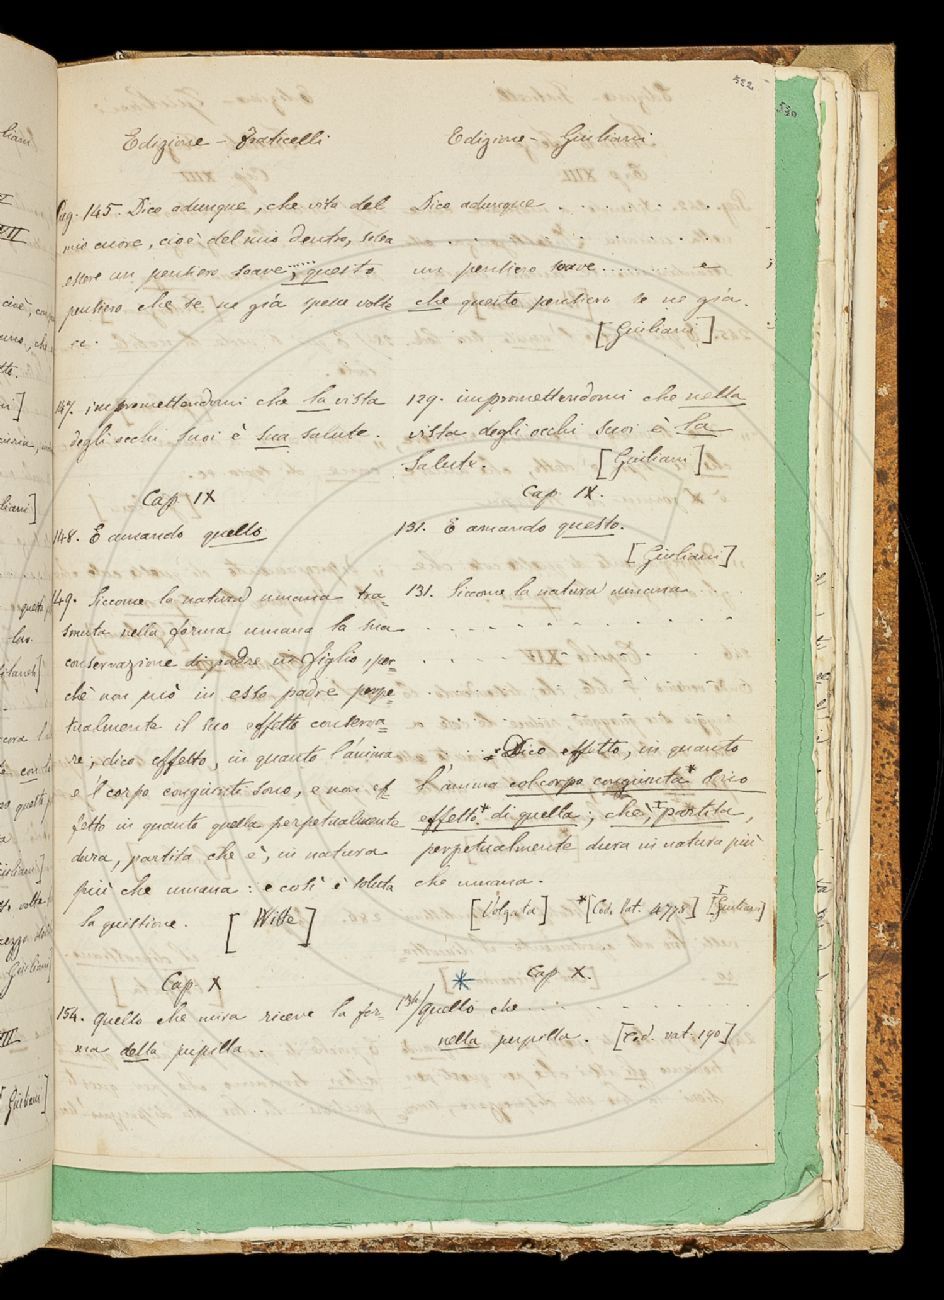 522
530
Edizione - Fraticelli
Pag. 145. Dico adunque, che vita del
mio cuore, cioè del mio dentro, solea
essere un pensiero soave; questo
pensiero che se ne gìa spesse volte
147. impromettendomi che la vista
degli occhi suoi è sua salute.
Cap. IX
148. E amando quello
149. Siccome la natura umana tra-
smuta nella forma umana la sua
conservazione di padre in figlio, per-
chè non può in esso padre perpe-
tualmente il suo effetto conserva-
re; dico effetto, in quanto l'anima
e 'l corpo congiunti sono, e non ef-
fetto in quanto quella perpetualmente
dura, partita che è, in natura
più che umana: e così è soluta
la quistione. [Witte]
Cap. X
154. Quello che mira riceve la for-
ma della pupilla.
Edizione - Giuliani
Dico adunque . . . . . . .
. . . . . . . . .
un pensiero soave..........
che questo pensiero se ne gìa.
[Giuliani]
129. impromettendomi che nella
vista degli occhi suoi è la
salute. [Giuliani]
Cap. IX.
131. E amando questo.
[Giuliani]
131. Siccome la natura umana
. . . . . . . . .
. . . . . . . . .
Dico effetto, in quanto
l'anima col corpo congiunta* dico
effetto* di quella; che, partita,
perpetualmente dura in natura più
che umana.
[Volgata] *[Cod. Vat. 4778] [Giuliani]
Cap. X.
134/ quello che . . . . . .
nella pupilla. [Cod. vat. 190]